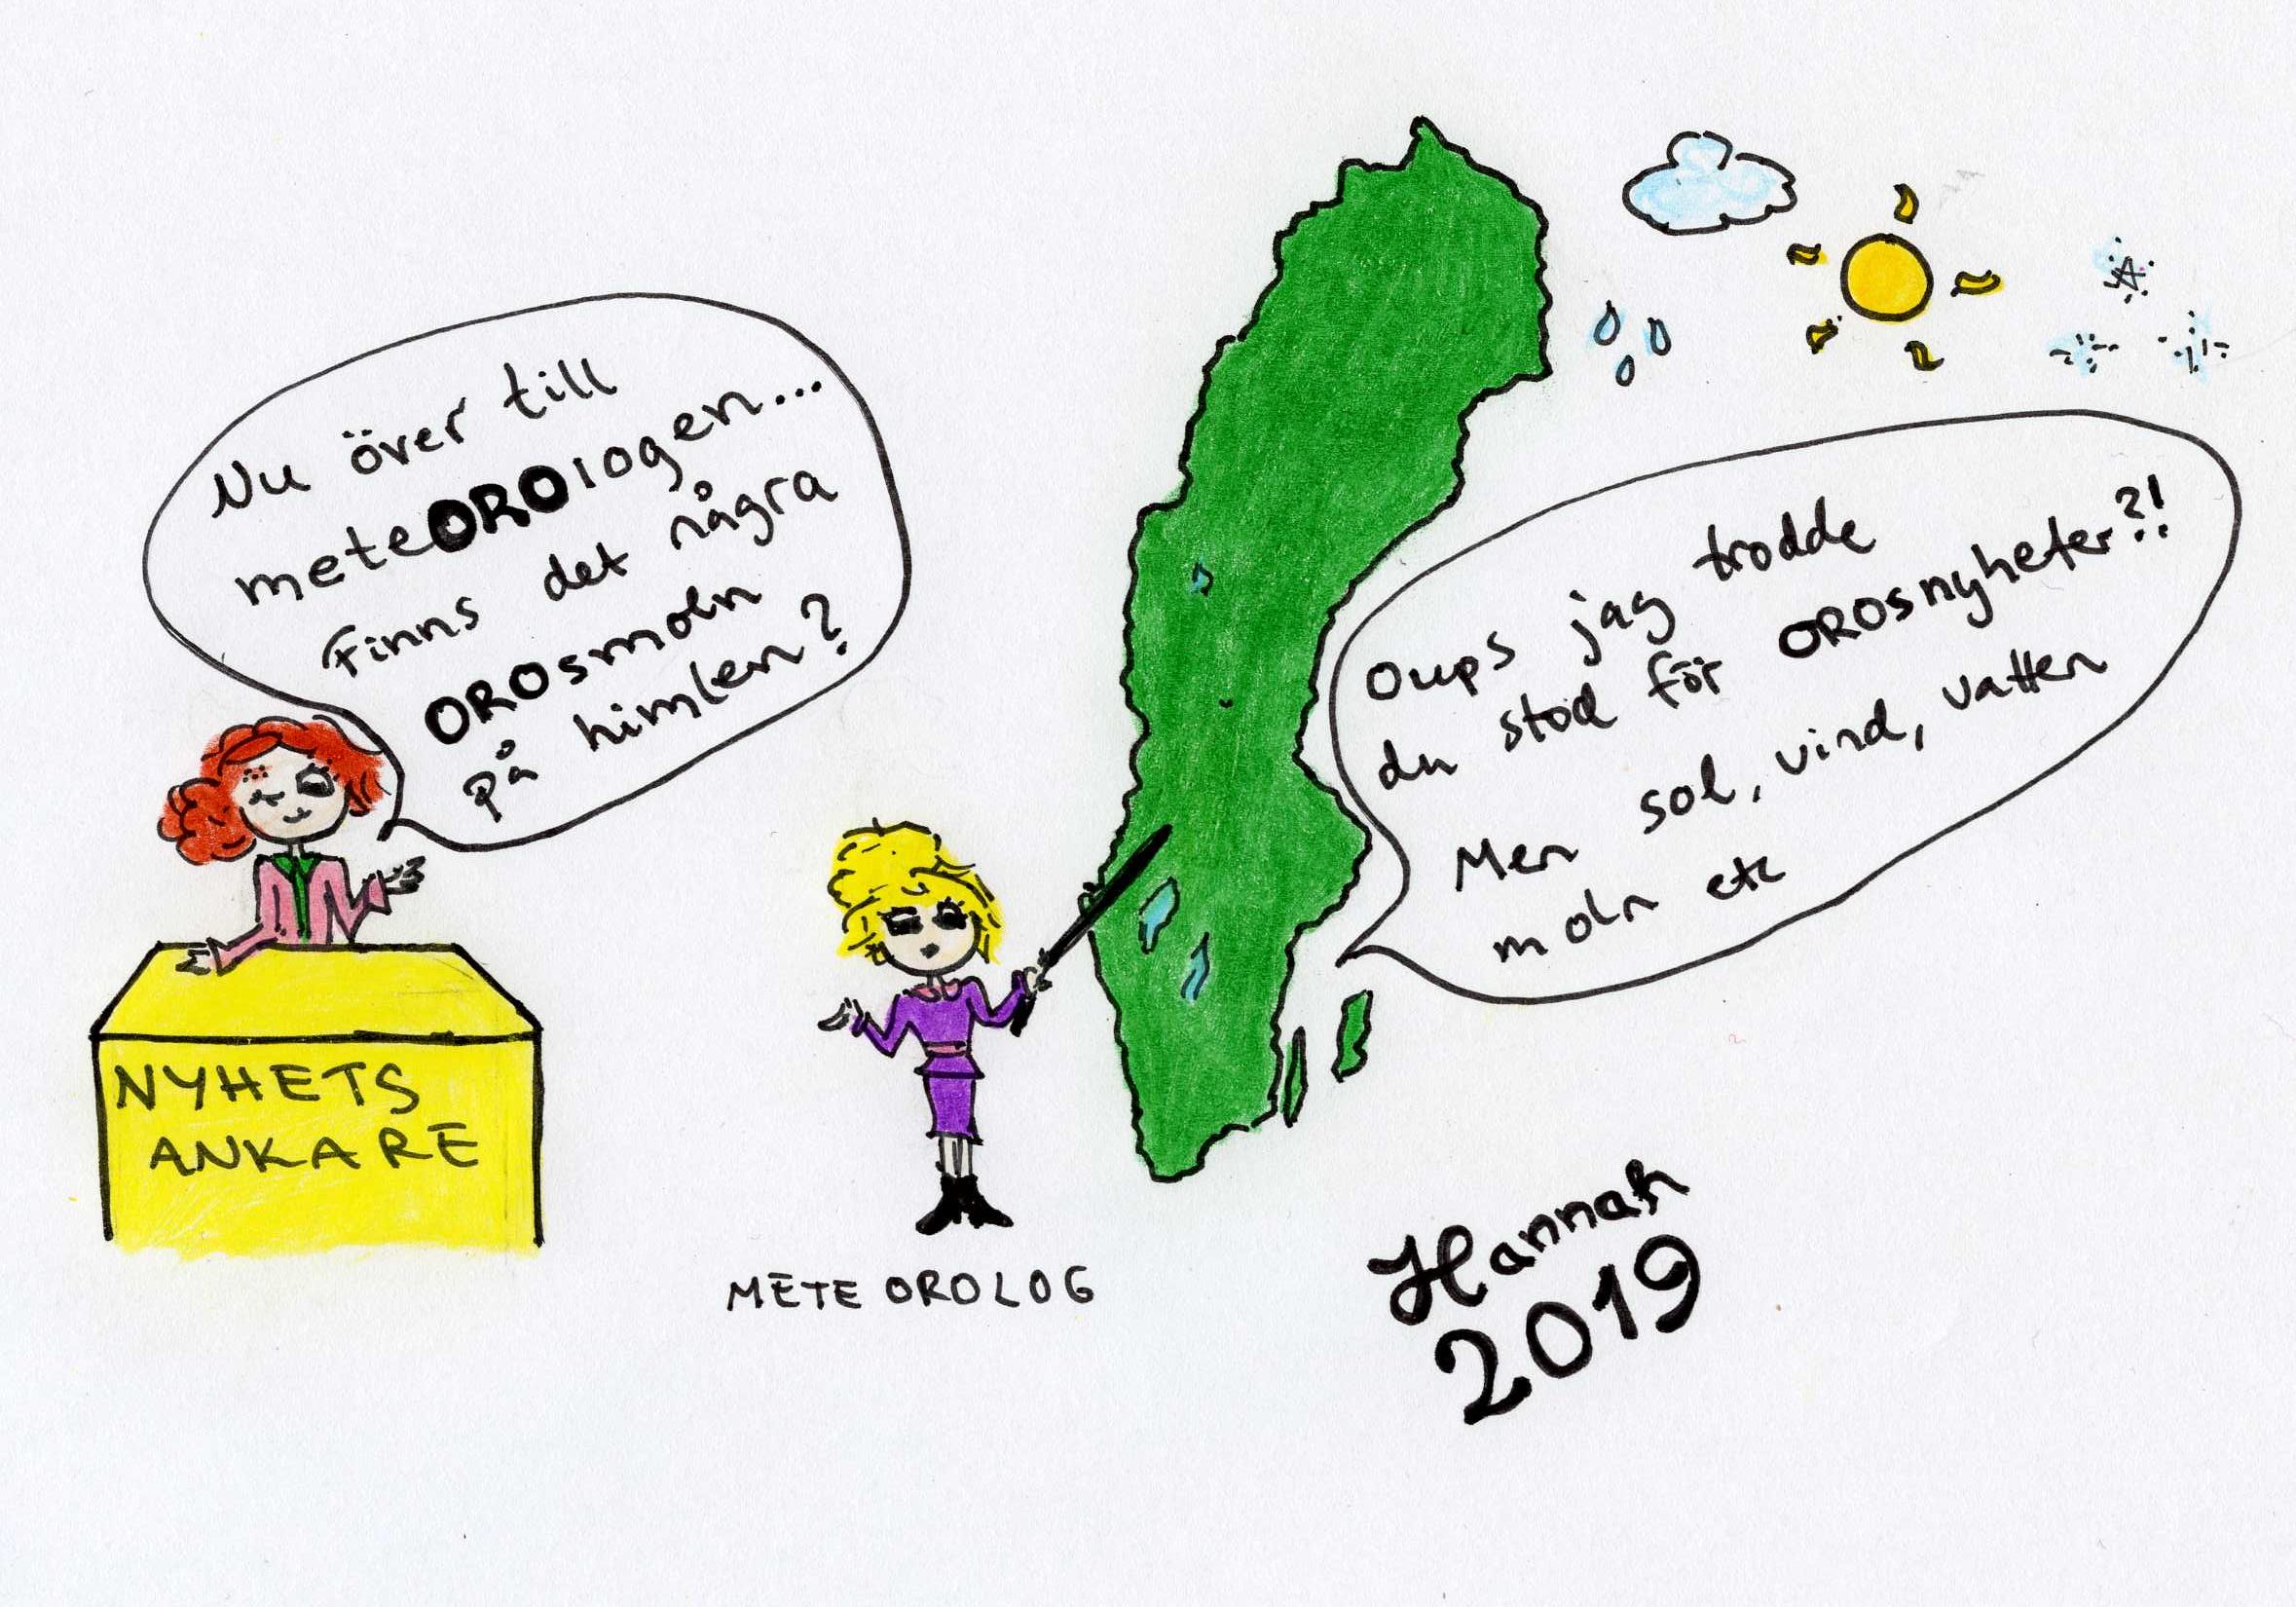 Nu över till
meteOROlogen...
Finns det några
OROsmoln
på himlen?
Oups jag trodde
du stod för OROsnyheter?!
Men sol, vind, vatten
moln etc
NYHETS
ANKARE
METEOROLOG
Hannah
2019